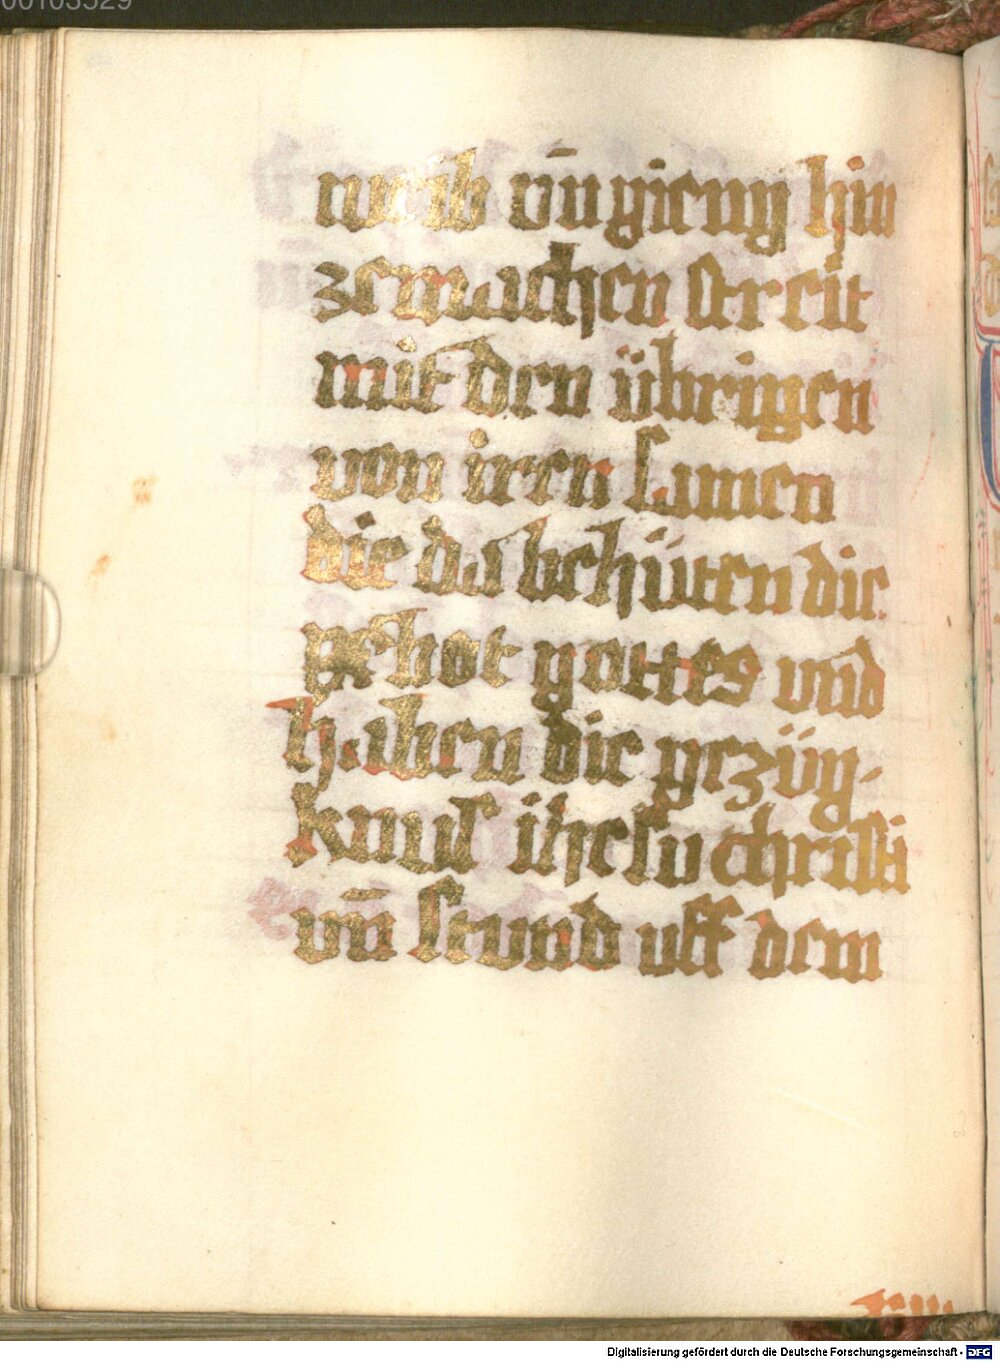 00103529
weib vn̄ gieng hin
zemachen streit
mit den übrigen
von iren samen
die da behüten die
gebot gottes vnd
haben die gezüg-
knus ihesu christi
vn̄ stund uff dem
Digitalisierung gefördert durch die Deutsche Forschungsgemeinschaft - DFG